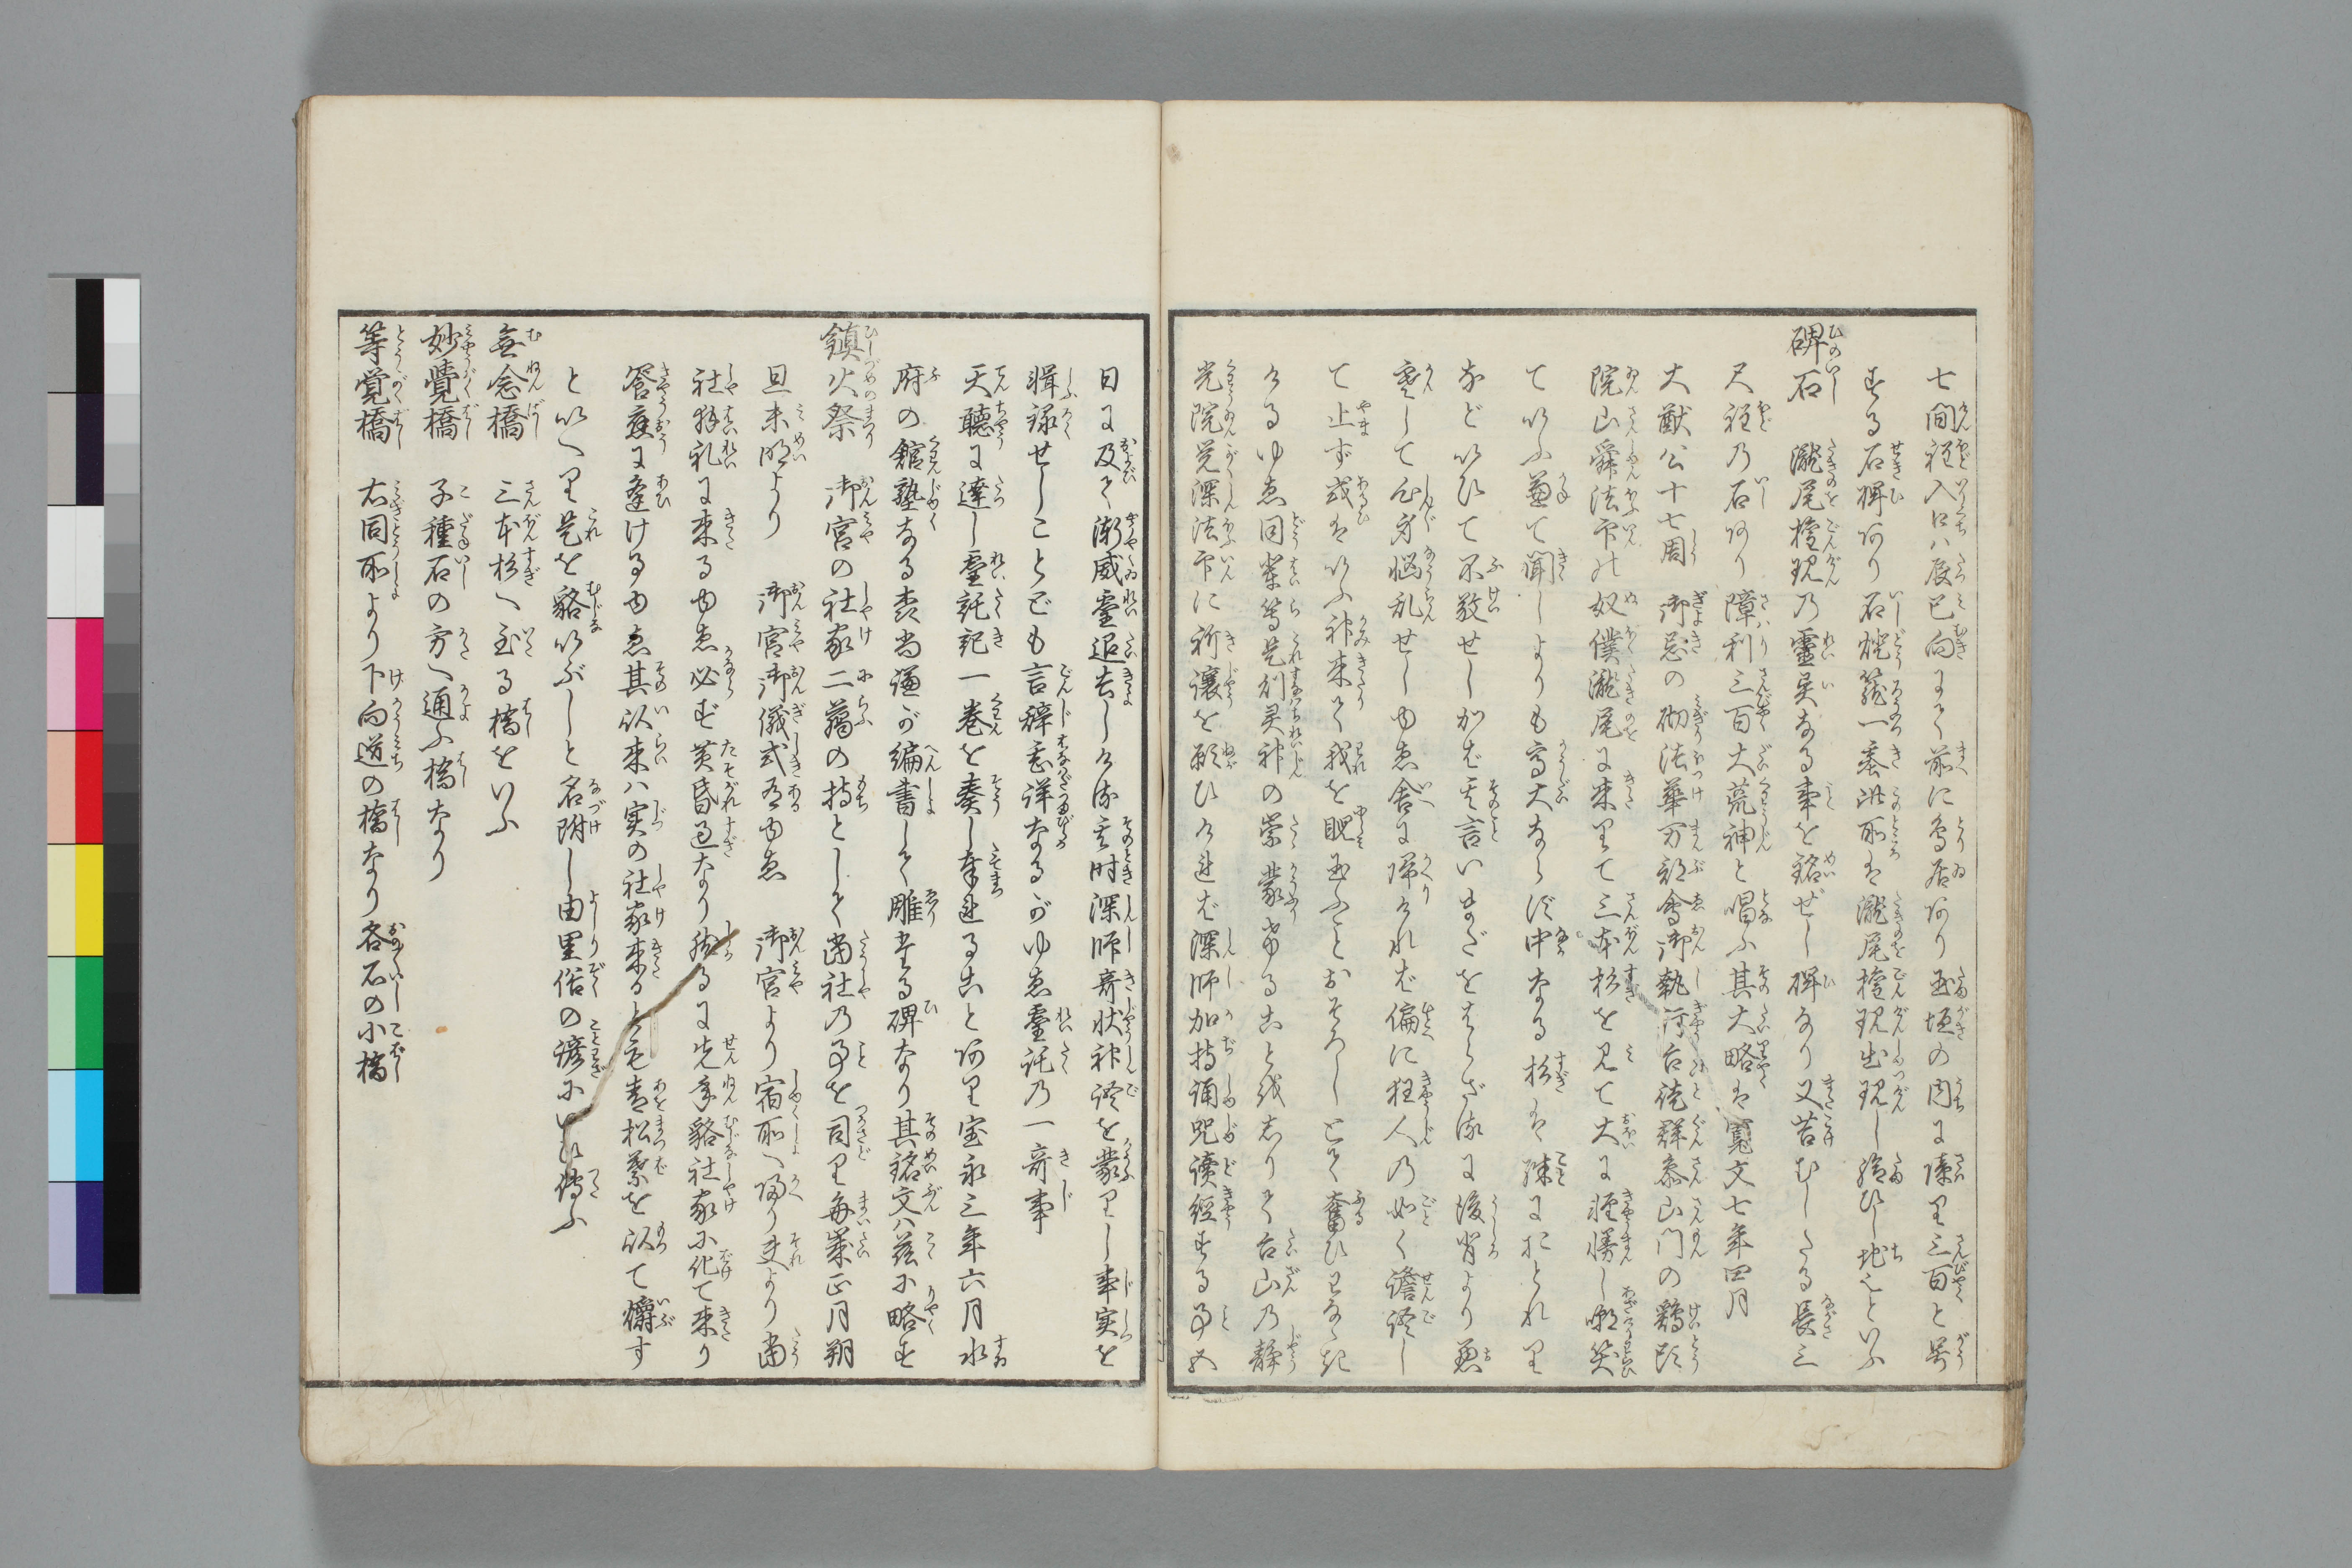 七間程入口ハ辰巳向にて前に鳥居あり玉垣の内に障り三百と号
する石碑あり石燈籠一基此所は瀧尾権現出現し給ひし地也といふ
碑石　瀧尾権現の靈異なる事を銘ぜし碑なり又苔むしたる長三
尺程の石あり障利三百大荒神と唱ふ其大略は寛文七年四月
大猷公十七周御忌の砌法華万部會御執行台徒群参山門の鶏頭
院山舜法印の奴僕瀧尾に来りて三本杉を見て大に軽慢し嘲笑
ていふ兼て聞しよりも高大ならず中なる杉は殊におとれり
などいひて不敬せしかば其言いまだをはらざるに後背より悪
寒して心身悩乱せしゆゑ舎に帰りければ偏に狂人の如く譫語し
て止ず或はいふ神来りて我を睨玉ふことおそろしとて奮ひわなゝき
けるゆゑ同輩等是則灵神の崇蒙ふることゝ知りて台山の静
光院覚深法印に祈禳を願ひければ深師加持誦咒読経する事五
日に及びて漸威靈退去しける其時深師奇状神語を蒙りし事実を
輯録せしことども言辞悉詳なるがゆゑ靈託の一奇事
天聴に達し靈託記一巻を奏し奉れることあり宝永三年六月水
府の舘塾なる森尚謙が編書して雕たる碑なり其銘文ハ茲に略す
鎮火祭　御宮の社家二﨟の持として當社の事を司り毎歳正月朔
旦未明より　御宮御儀式有ゆゑ　御宮より宿所へ帰り夫より當
社拝礼に来るゆゑ必ず黄昏過たり然るに先年貉社家に化て来り
饗應に逢けるゆゑ其以来ハ実の社家来ると毛青松葉を以て燻す
といへり是を貉いぶしと名附し由里俗の諺にいひ傳ふ
無念橋　三本杉へ至る橋をいふ
妙覺橋　子種石の方へ通ふ橋なり
等覚橋　右同所より下向道の橋なり各石の小橋